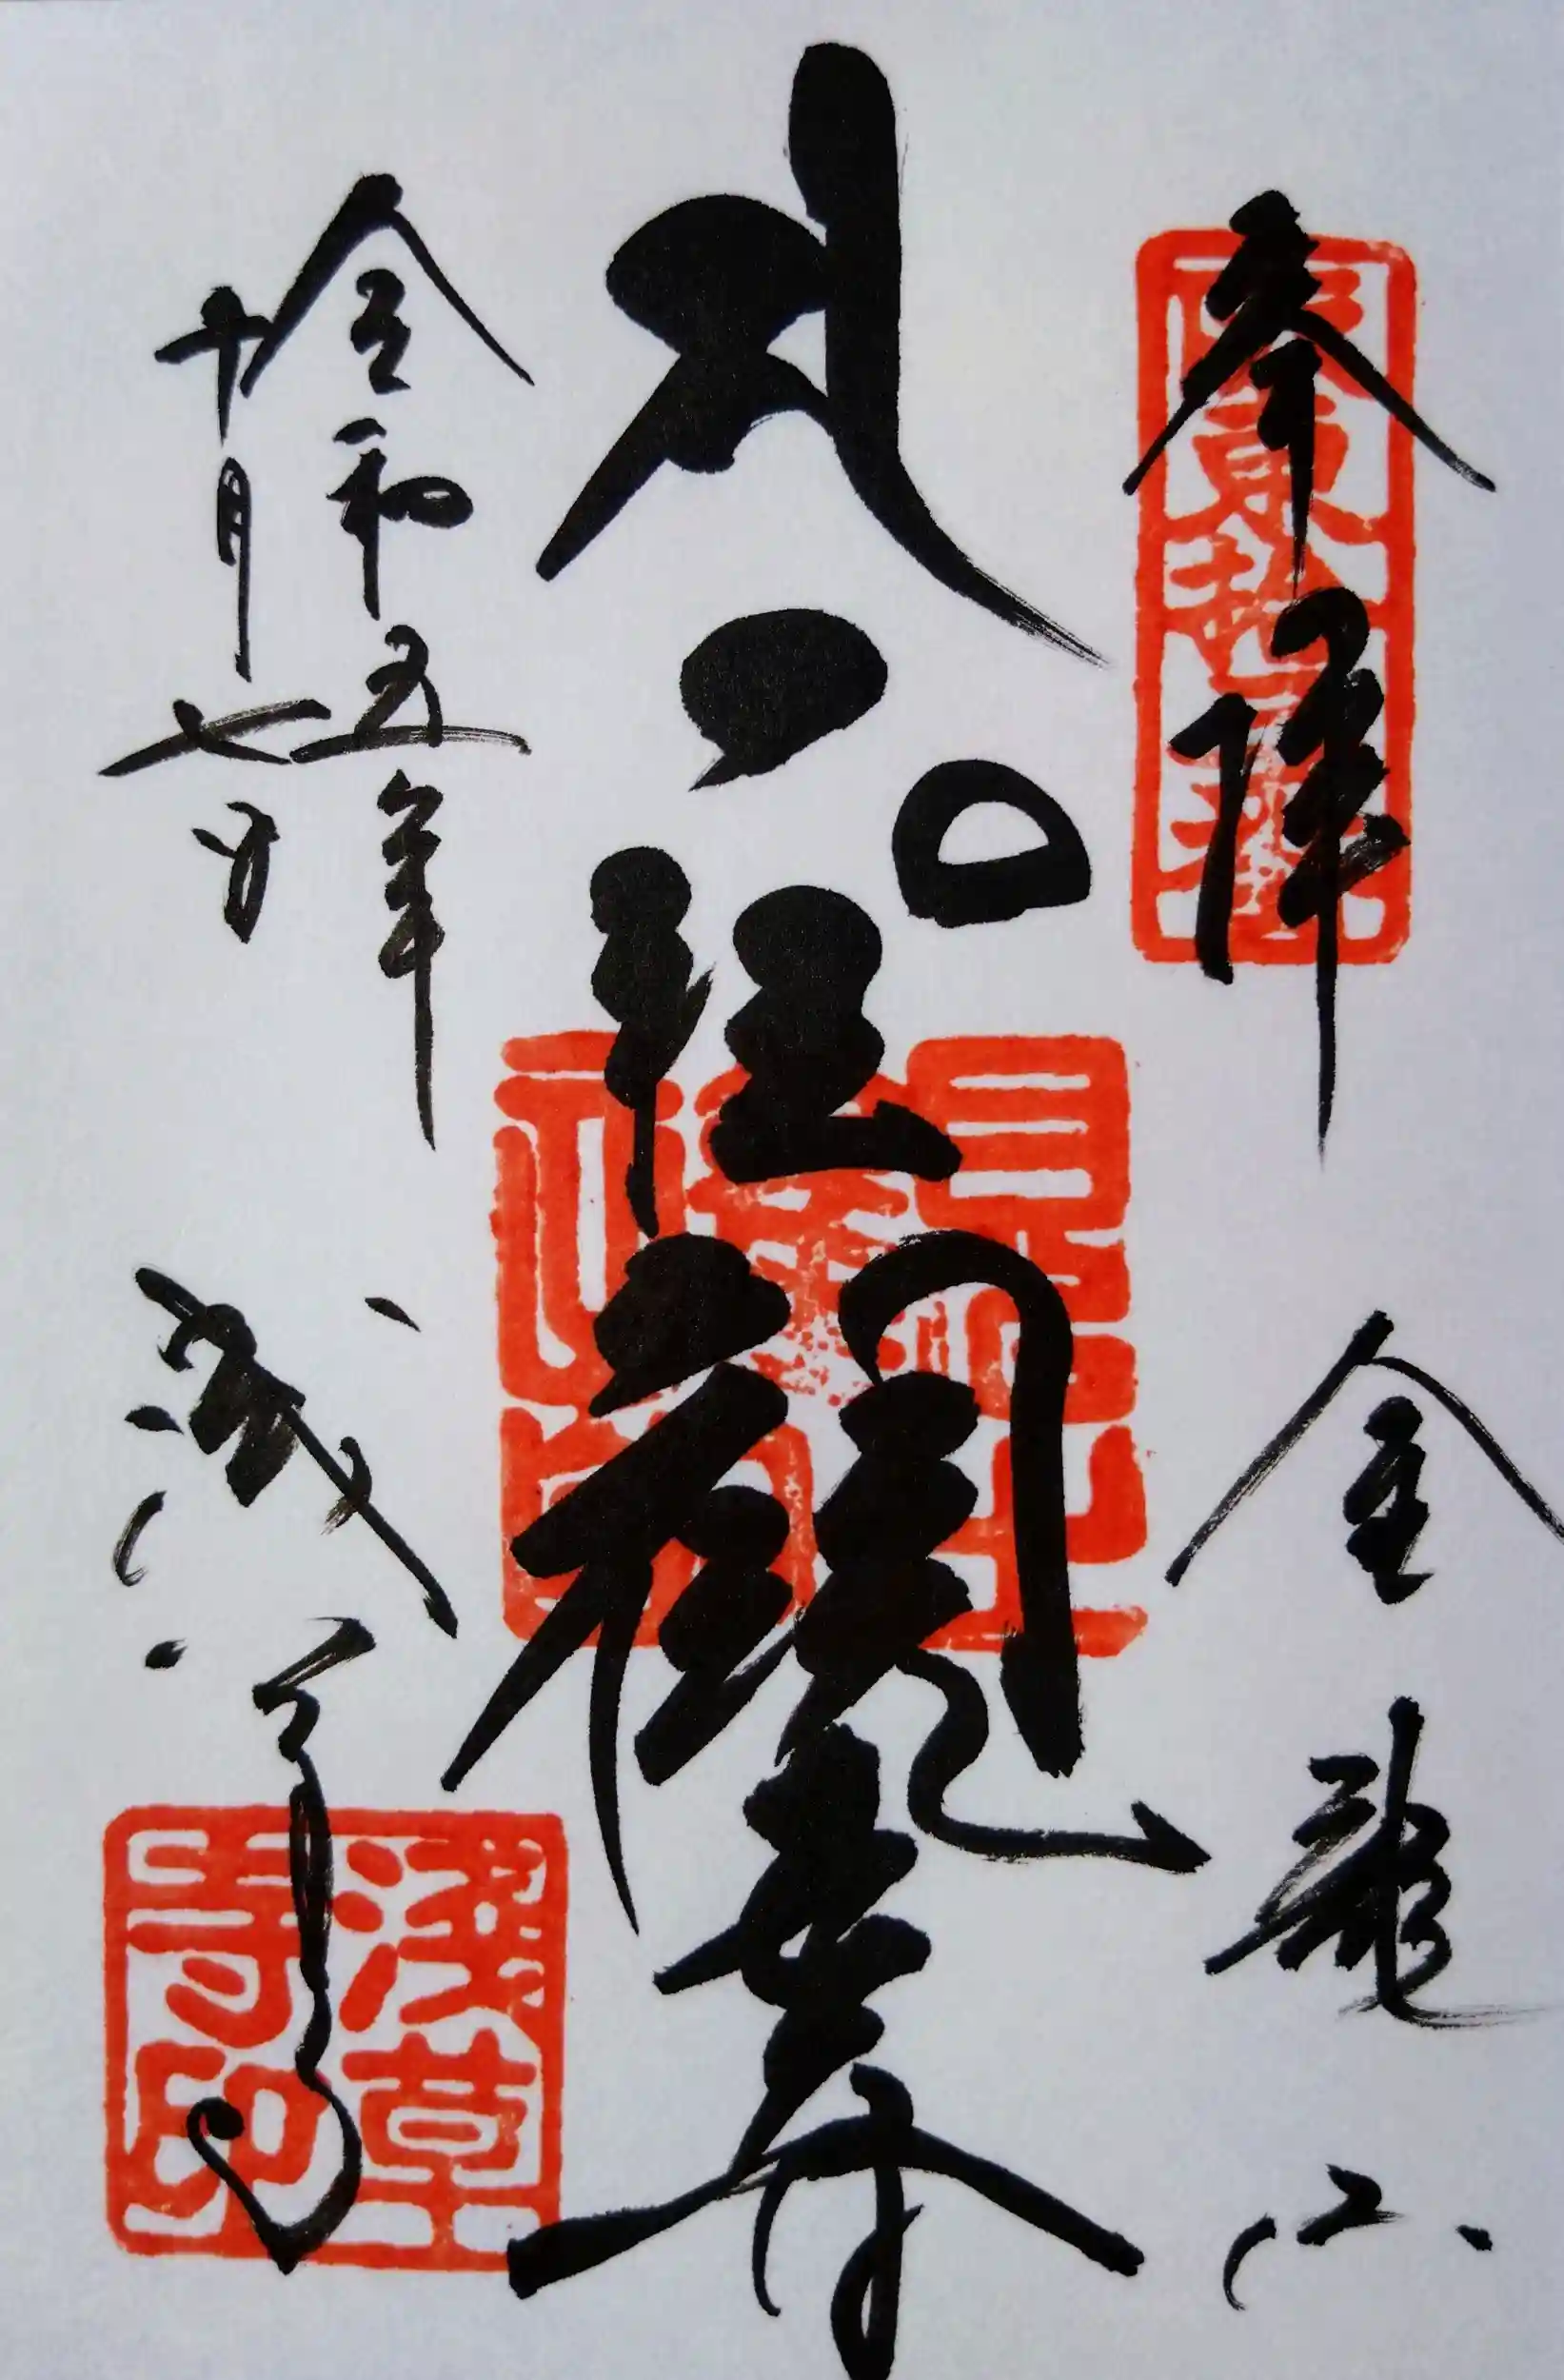 奉拝
坂東拾三番
金龍山
聖観世音
令和五年
十月七日
浅草寺
淺草寺印